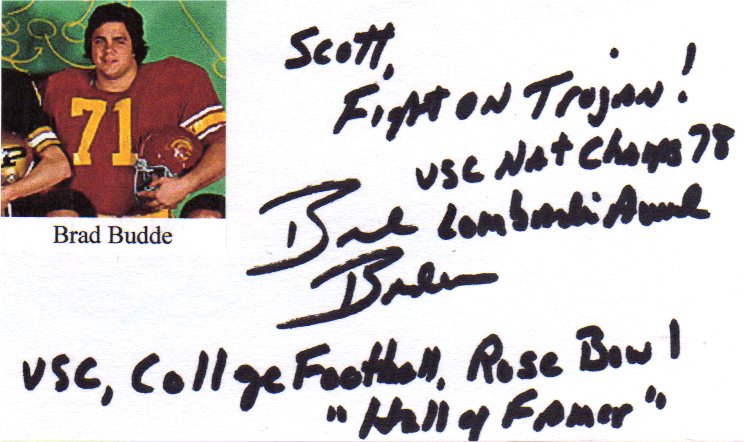 Scott,
Fight on Trojan!
USC Nat Champs 78
Lombardi Award
Brad
Budde
71
P
Brad Budde
USC, College Football, Rose Bowl
"Hall of Famer"